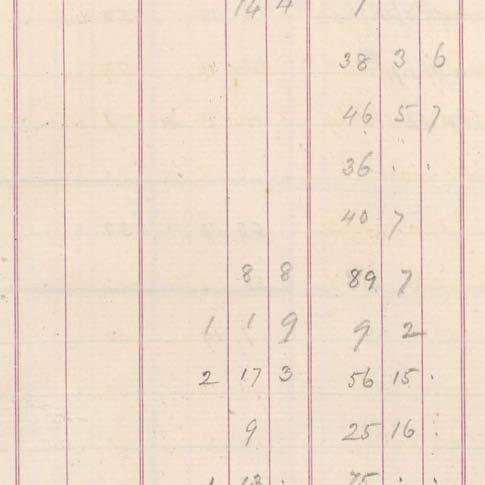 14 4 1
38 3 6
46 5 7
36 . .
40 7
8 8 89 7
1 1 9 9 2
2 17 3 56 15 .
9 25 16 .
1 13 . 75 . .